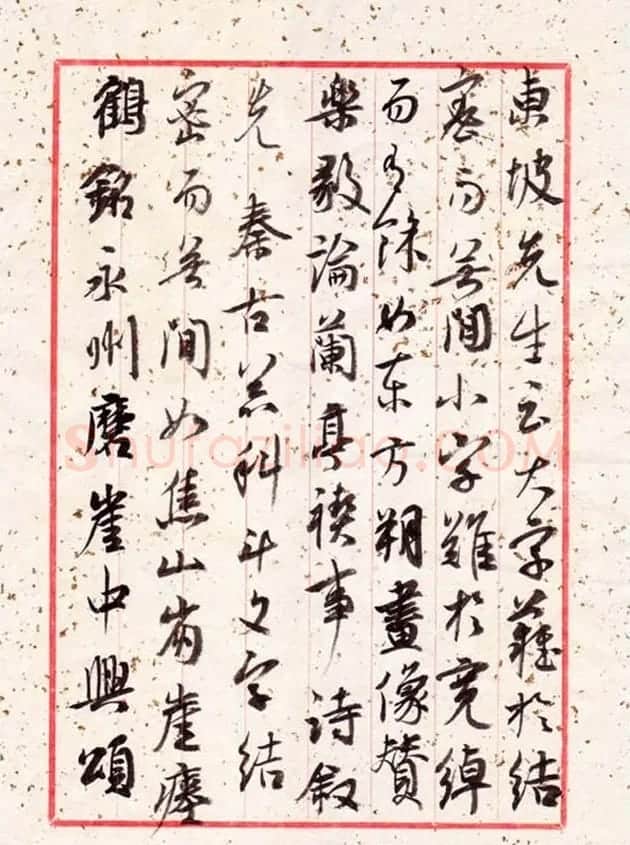 東坡先生云大字難於結
密而無間小字難於寬綽
而有餘如東方朔畫像贊
樂毅論蘭亭禊事詩叙
先秦古器科斗文字結
密而無間如焦山崩崖瘞
鶴銘永州磨崖中興頌
Shufaziliao.COM